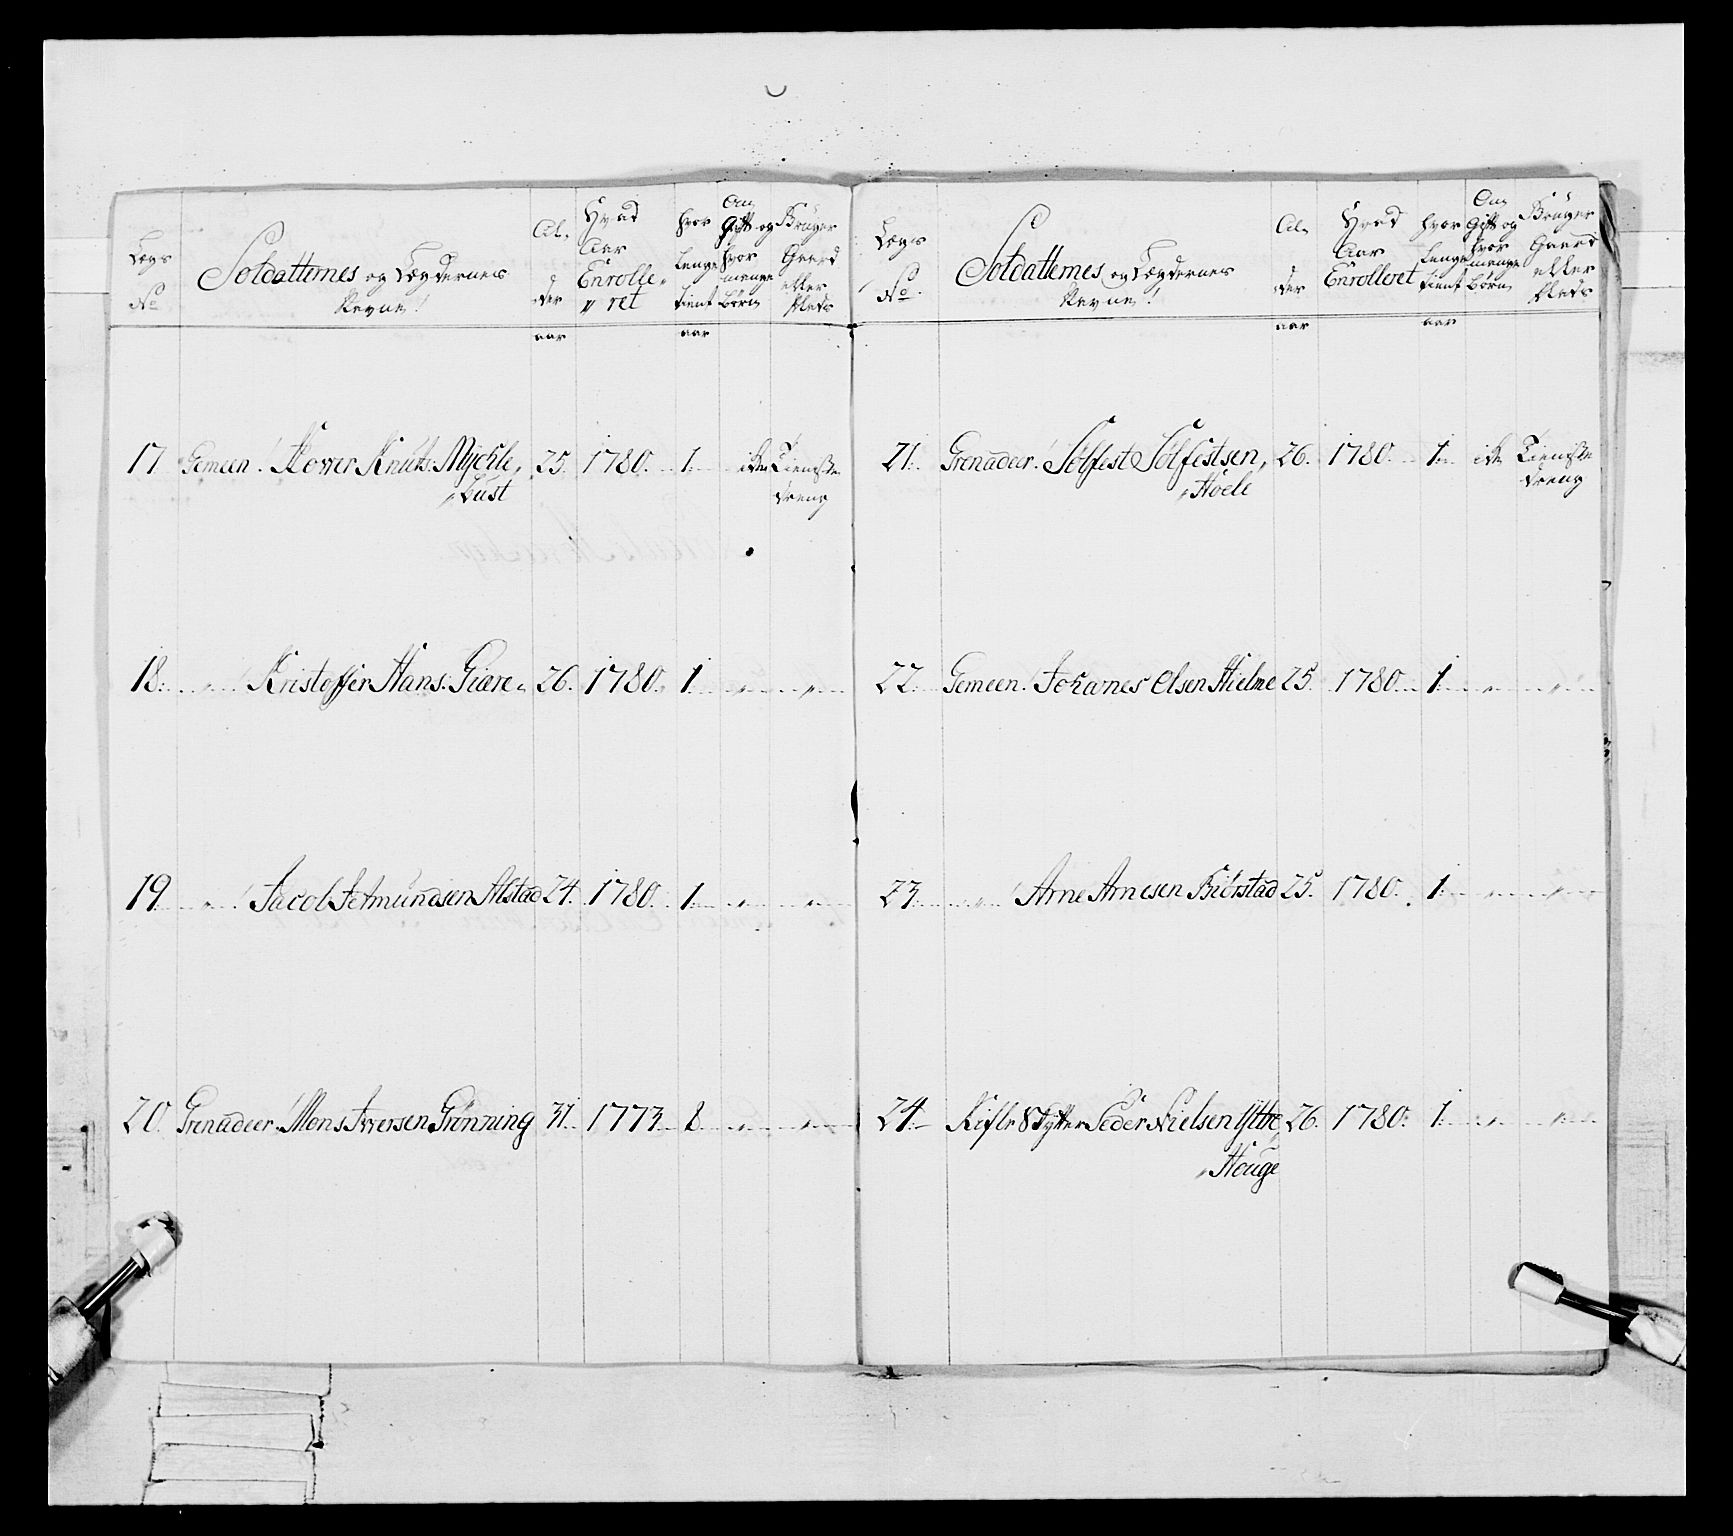 Lægs No
Soldatternes og Lægdernes Nevne!
Al„ der
Hvad Aar Enrolle„ „ret
hvor lenge tient
Om Gift og hvor mange børn
Bruger Gaard eller Plads
aar aar
17 Gemeen! Knuds: Mychle„ 25. 1780. 1. iche Tieniste
„bust dreng
18. „ Kristoffer Hans. Giære„ 26. 1780. 1. „ „
19. „ Jacob Alstad 24. 1780. 1. „ „
20. Grenadeer! Mons Iversen Grønning 31. 1773. 8. „ „
Lægs No.
Soldatternes og Lægdernes Nevne!
Al„ der
Hvad Aar Enrolleret
hvor lenge tient
Om Gift og hvor mange børn
Bruger Gaard eller Plads
aar aar
21. Grenadeer! Solfest Solfestsen, 26. 1780. 1. iche Tieniste
„Hoele dreng
22. Gemeen! Johanes Olsen Hielme 25. 1780. 1. „ „
23. „ Arne Arnesen Biørstad 25. 1780. 1. „ „
24. Rifle Skytter Peder Nielsen Yttre 26. 1780. 1. „ „
„Houge